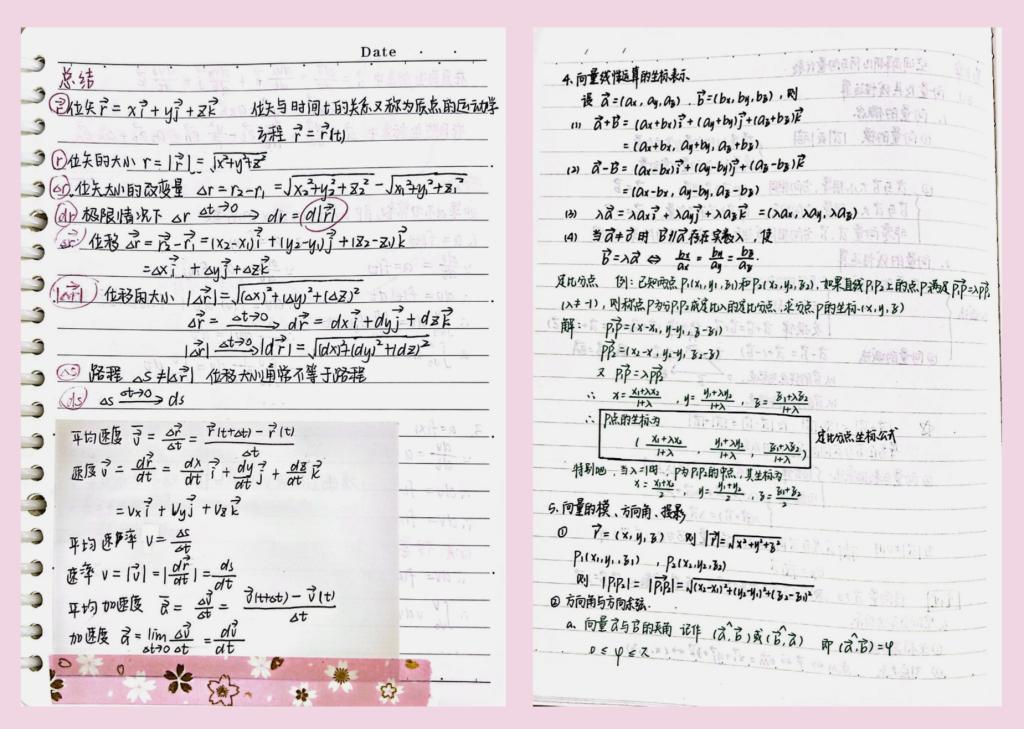 Date
总结
r⃗ 位矢 r⃗ = xi⃗ + yj⃗ + zk⃗ 位矢与时间t的关系又称为质点的运动学
方程 r⃗ = r⃗(t)
r 位矢的大小 r = |r⃗| = √(x²+y²+z²)
Δr 位矢大小的改变量 Δr = r₂-r₁ = √(x₂²+y₂²+z₂²) - √(x₁²+y₁²+z₁²)
dr 极限情况下 Δr —Δt→0→ dr = d|r⃗|
Δr⃗ 位移 Δr⃗ = r⃗₂-r⃗₁ = (x₂-x₁)i⃗ + (y₂-y₁)j⃗ + (z₂-z₁)k⃗
= Δxi⃗ + Δyj⃗ + Δzk⃗
|Δr⃗| 位移的大小 |Δr⃗| = √((Δx)²+(Δy)²+(Δz)²)
Δr⃗ = —Δt→0→ dr⃗ = dxi⃗ + dyj⃗ + dzk⃗
|Δr⃗| —Δt→0→ |dr⃗| = √((dx)²+(dy)²+(dz)²)
Δs 路程 Δs ≠ |Δr⃗| 位移大小通常不等于路程
ds Δs —Δt→0→ ds
平均速度 v⃗ = Δr⃗/Δt = (r⃗(t+Δt) - r⃗(t))/Δt
速度 v⃗ = dr⃗/dt = dx/dt i⃗ + dy/dt j⃗ + dz/dt k⃗
= vxi⃗ + vyj⃗ + vzk⃗
平均速率 v = Δs/Δt
速率 v = |v⃗| = |dr⃗/dt| = ds/dt
平均加速度 a⃗ = Δv⃗/Δt = (v⃗(t+Δt) - v⃗(t))/Δt
加速度 a⃗ = lim Δt→0 Δv⃗/Δt = dv⃗/dt
4. 向量线性运算的坐标表示.
设 a⃗ = (ax, ay, az) . b⃗ = (bx, by, bz) , 则
(1) a⃗+b⃗ = (ax+bx)i⃗ + (ay+by)j⃗ + (az+bz)k⃗
= (ax+bx, ay+by, az+bz)
(2) a⃗-b⃗ = (ax-bx)i⃗ + (ay-by)j⃗ + (az-bz)k⃗
= (ax-bx, ay-by, az-bz)
(3) λa⃗ = λaxi⃗ + λayj⃗ + λazk⃗ = (λax, λay, λaz)
(4) 当 a⃗≠0⃗ 时 b⃗∥a⃗ 存在实数λ, 使
b⃗ = λa⃗ ⇔ bx/ax = by/ay = bz/az.
定比分点 例: 已知两点 P₁(x₁, y₁, z₁) 和 P₂(x₂, y₂, z₂), 如果直线P₁P₂上的点P满足 P₁P⃗=λPP₂⃗
(λ≠-1), 则称点P为P₁P₂成定比λ的定比分点, 求分点P的坐标(x, y, z)
解: P₁P⃗ = (x-x₁, y-y₁, z-z₁)
PP₂⃗ = (x₂-x, y₂-y, z₂-z)
又 P₁P⃗ = λPP₂⃗
∴ x = (x₁+λx₂)/(1+λ) , y = (y₁+λy₂)/(1+λ) , z = (z₁+λz₂)/(1+λ)
∴ P点的坐标为
( (x₁+λx₂)/(1+λ) , (y₁+λy₂)/(1+λ) , (z₁+λz₂)/(1+λ) ) 定比分点坐标公式
特别地, 当λ=1时, P为P₁P₂的中点, 其坐标为
x = (x₁+x₂)/2 , y = (y₁+y₂)/2 , z = (z₁+z₂)/2
5. 向量的模、方向角、投影
① r⃗ = (x, y, z) 则 |r⃗| = √(x²+y²+z²)
P₁(x₁, y₁, z₁) , P₂(x₂, y₂, z₂)
则 |P₁P₂| = |P₁P₂⃗| = √((x₂-x₁)²+(y₂-y₁)²+(z₂-z₁)²)
② 方向角与方向余弦.
a. 向量a⃗与b⃗的夹角 记作 (a⃗,^b⃗) 或 (b⃗,^a⃗) 即 (a⃗,^b⃗)=φ
0 ≤ φ ≤ π